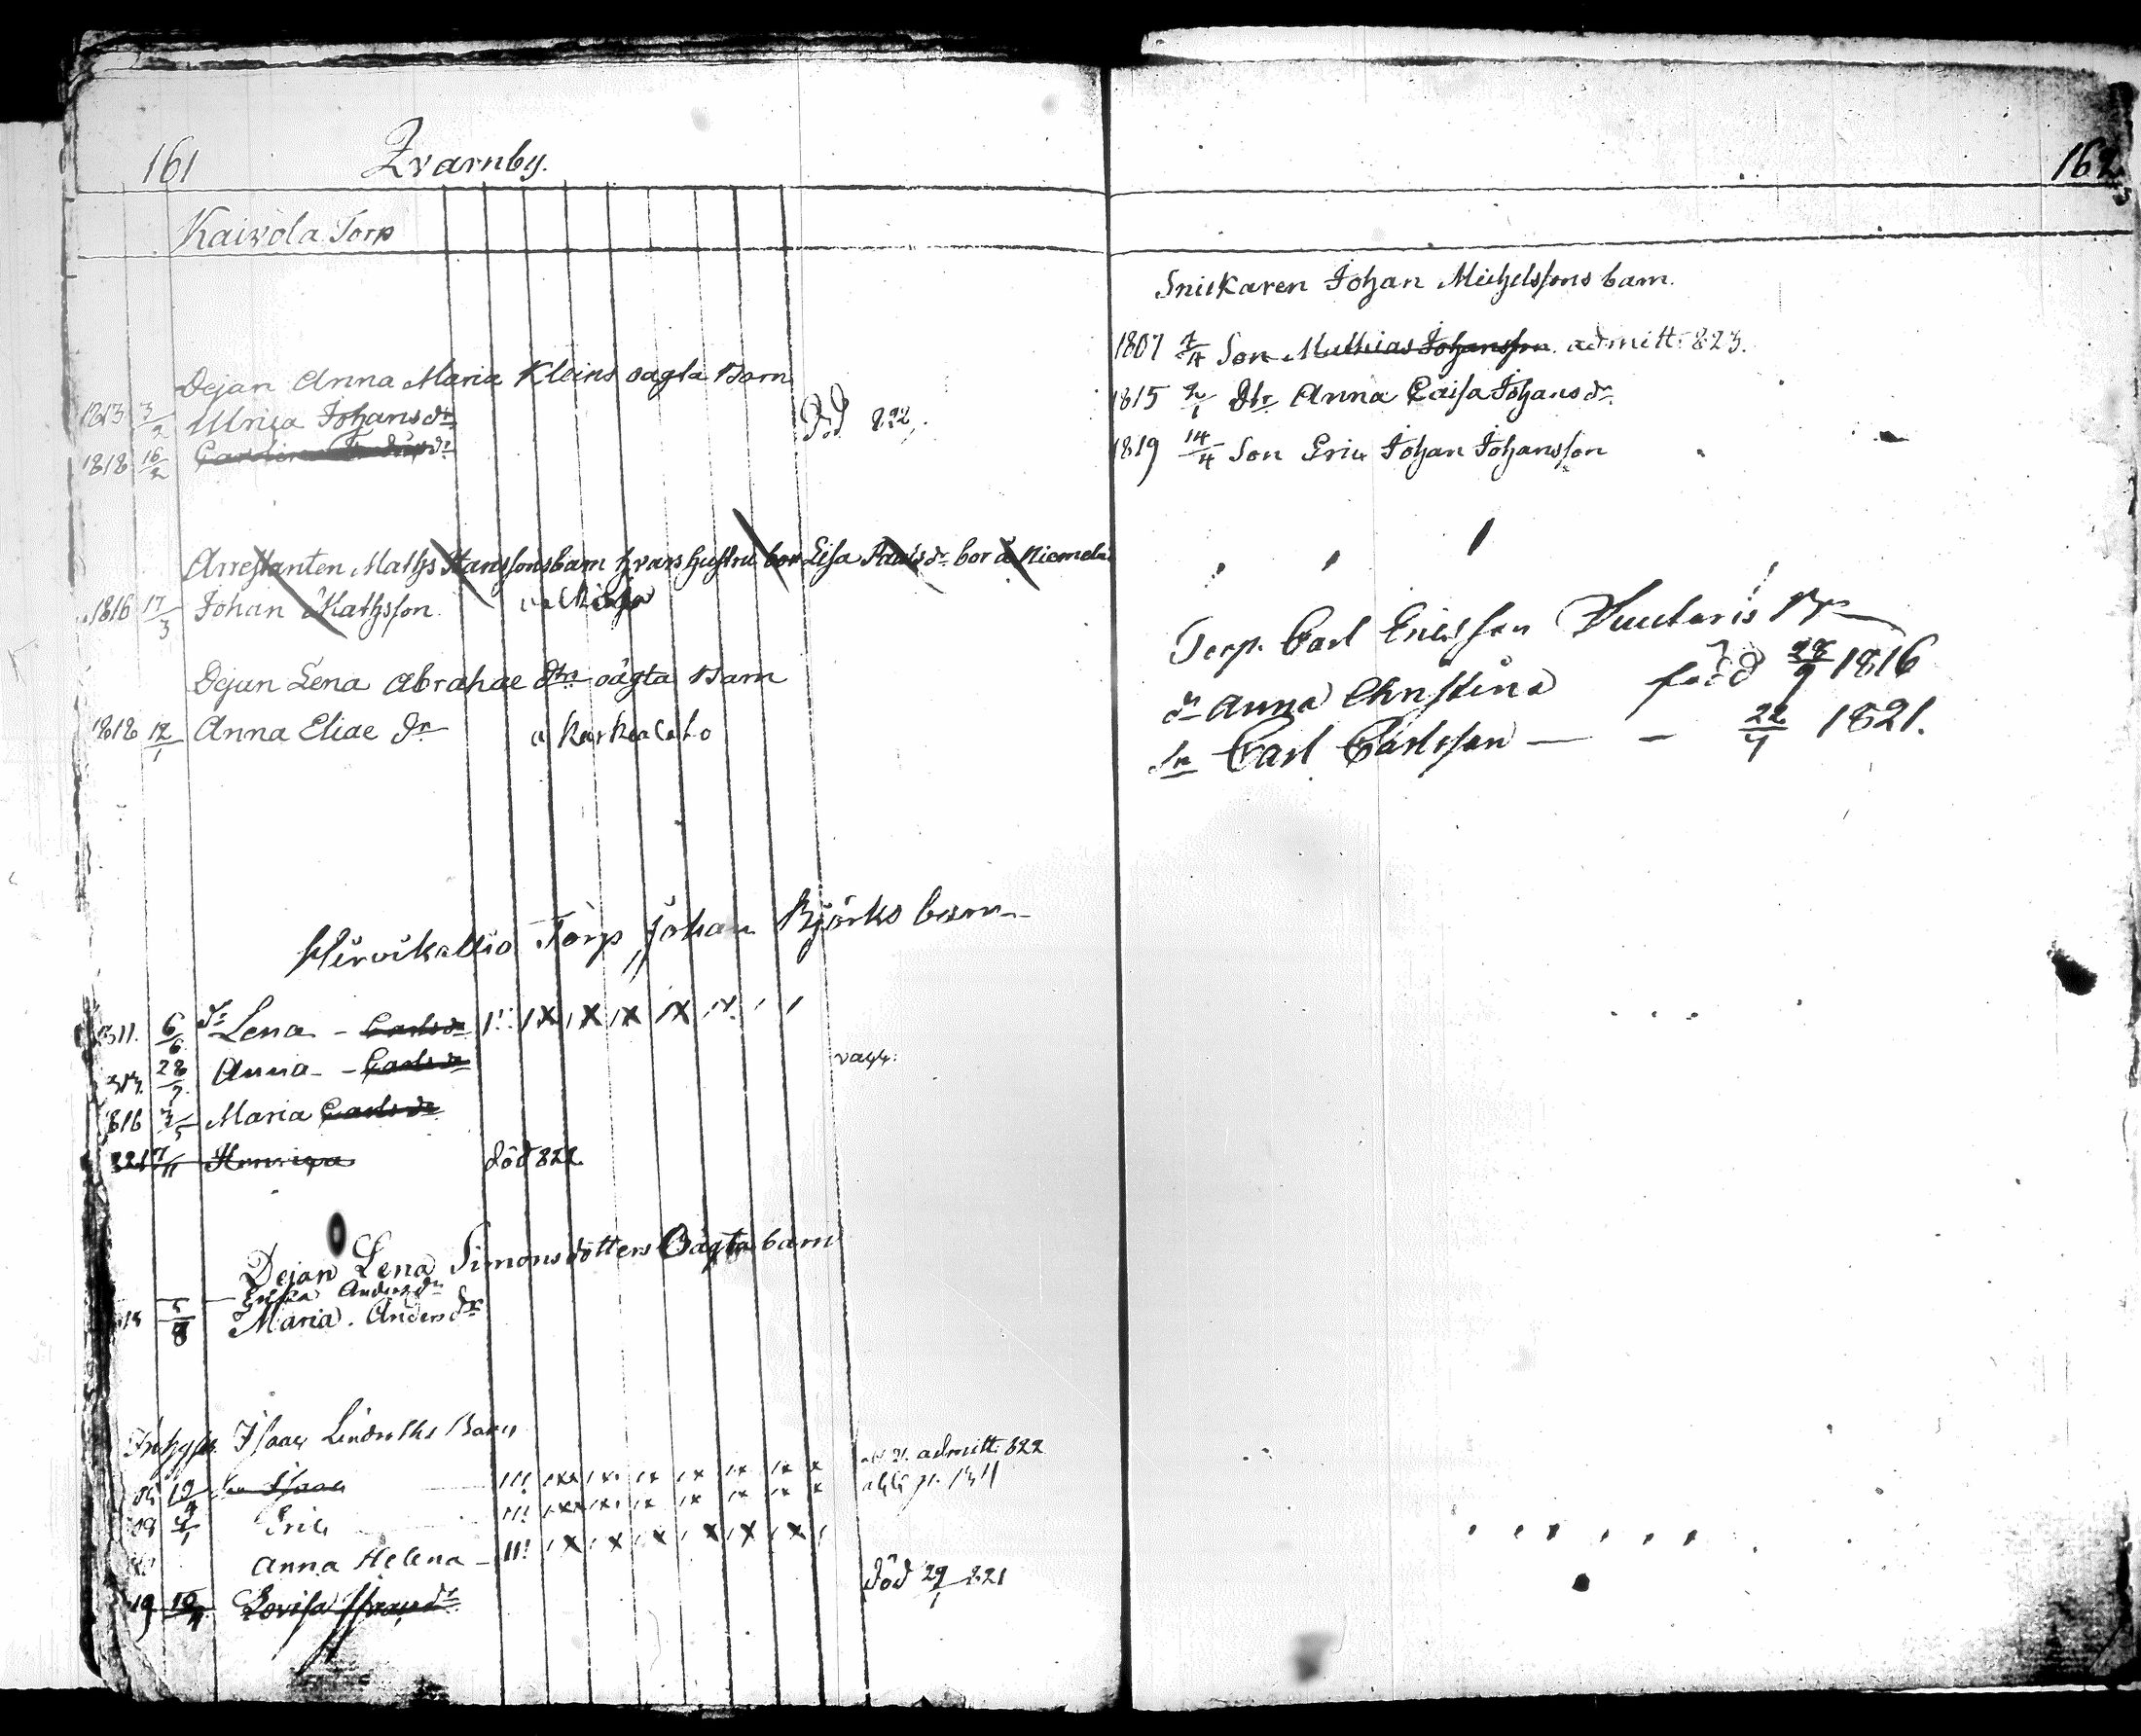 161 Qvarnby.
Kaivola Torp
Dejan Anna Maria Kleins oägta Barn
1813 3/2 Ulrica Johansdr Död 822.
1818 16/2 Carolina
Arrestanten Mathsons barn hvars hustru bor Lisa bor å Niemelä
1816 17/3 Johan Mathsson
Dejan Lena Abrahae dtrs oägta Barn
1818 12/1 Anna Eliae dr a Karkealalo
Hirvikallio Torp Johan Björks barn
811. 6/6 dr Lena - Carlsdr
28/7 Anna - Carlsdr vacc:
816 Maria Carlsdr
821 Henrica död 822
Dejan Lena Simonsdotters Oägta barn
Andersdr
5/8 Maria. Andersdr
Isaac Lindroths Barn
19 son Isaac admitt. 822
09 Eric
Anna Helena
19 Lovisa Isaacsdr död 29/1 821
162
Snickaren Johan Michelssons barn.
1807 Son Mathias Johansson. admitt. 823.
1815 Dtr Anna Caisa Johansdr
1819 14/4 Son Eric Johan Johansson
Torp. Carl Ericsson
dr Anna Christina född 28/9 1816
sn Carl Carlsson — - 22/7 1821.